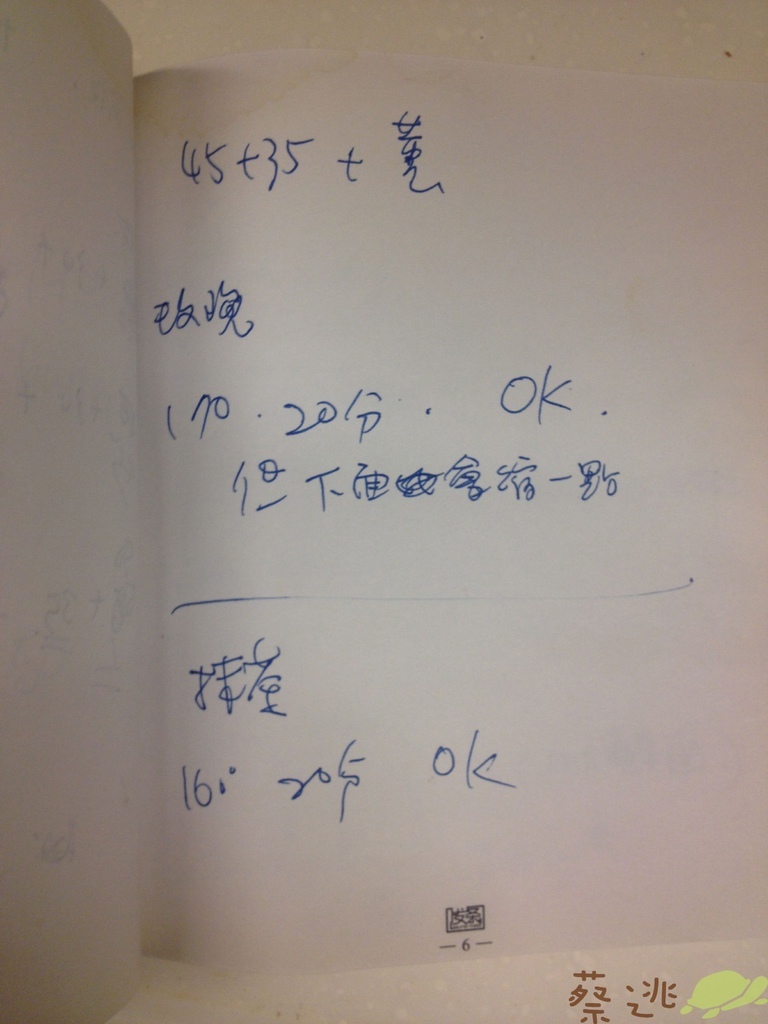 45+35 + 薏
玫瑰
170 . 20分 . OK .
但下面會縮一點
抹茶
160° 20分 OK
— 6 —
蔡逃